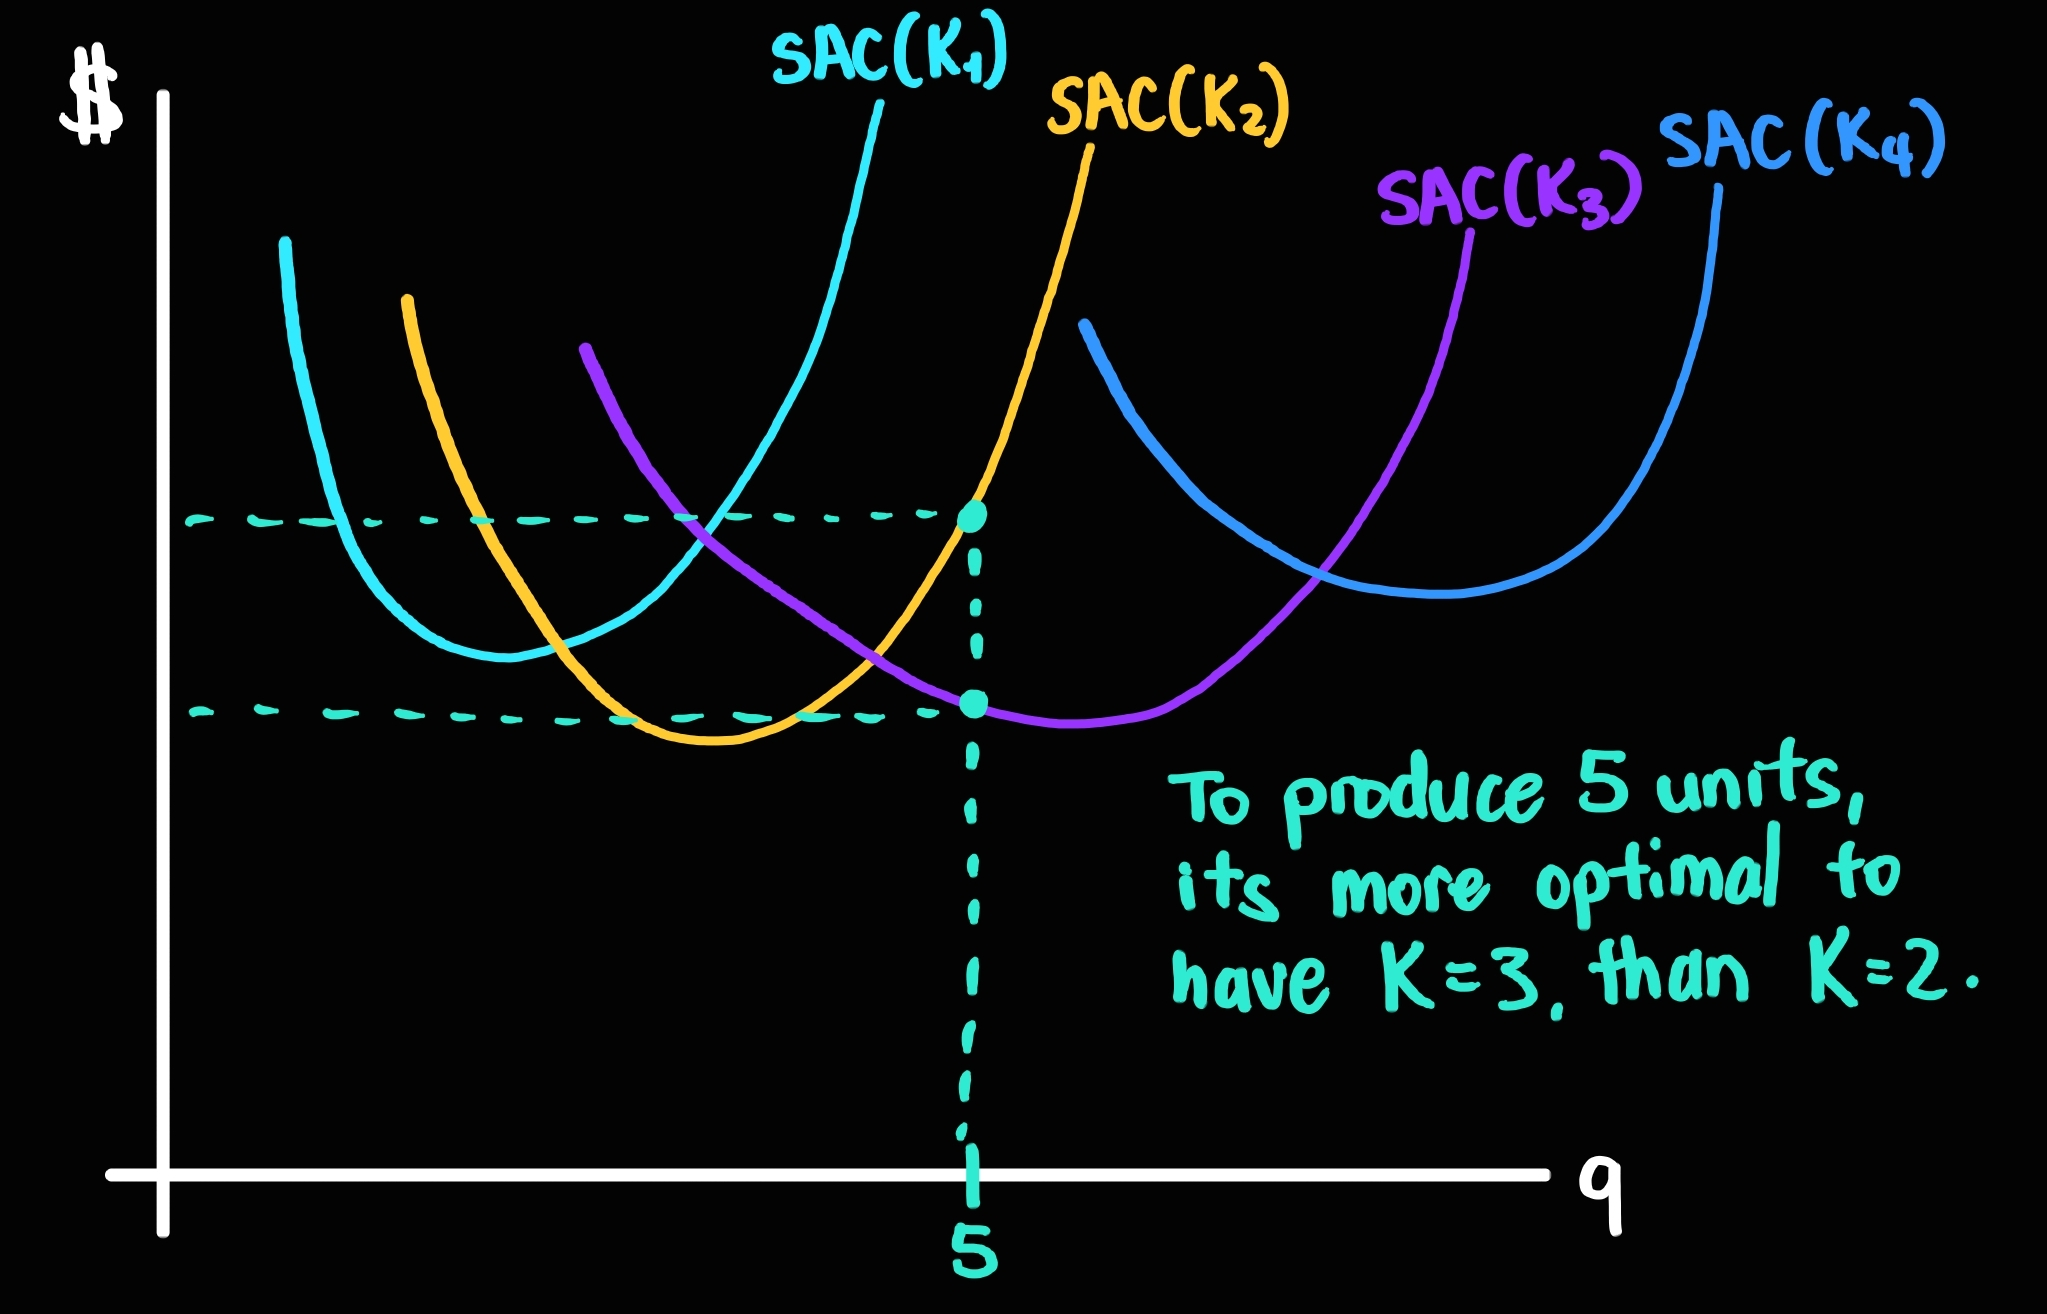 $
SAC(K₁)
SAC(K₂)
SAC(K₃)
SAC(K₄)
To produce 5 units,
its more optimal to
have K=3, than K=2.
q
5